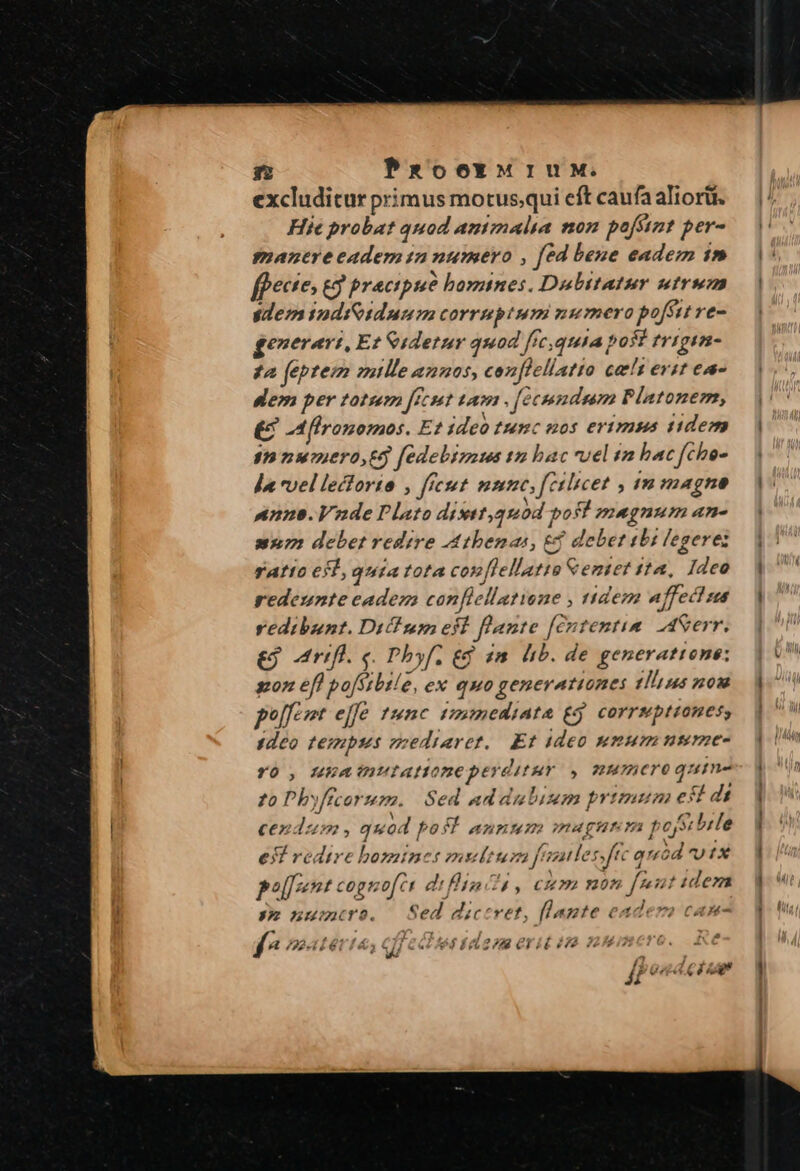 12 PROOEMIUM.
excluditur primus motus,qui eſt cauſa aliorũ.
Hic probat quod animalia non poſsint per-
manere eadem in numero , ſed bene eadem in
ſpecie, & præcipuè homines. Dubitatur utrum
idem indiuiduum corruptum numero poſsit re-
generari, Et uidetur quod ſic,quia poſt trigin-
ta ſeptem mille annos, conſtellatio cæli erit ea-
dem per totum ſicut tam . ſecundum Platonem,
& Aſtronomos. Et ideò tunc nos erimus iidem
in numero,& ſedebimus in hac vel in hac ſcho-
la vel lectorio , ſicut nunc,ſcilicet , in magno
anno. Vnde Plato dixit,quòd poſt magnum an-
num debet redire Athenas, & debet ibi legere:
ratio eſt, quia tota conſtellatio ueniet ita, Ideo
redeunte eadem conſtellatione , iidem affectus
redibunt. Dictum eſt ſtante ſententia Auerr.
& Ariſt. 5. Phyſ. & in lib. de generatione:
non eſt poſsibile, ex quo generationes illius non
poſſent eſſe tunc immediata & corruptiones,
ideo tempus mediaret. Et ideo unum nume-
ro , una mutatione perditur , numero quin-
to Phyſicorum. Sed ad dubium primum eſt di
cendum , quòd poſt annum magnum poſsibile
eſt redire homines multum ſimiles,ſic quòd vix
poſſunt cognoſci diſtincti , cùm nòn ſunt idem
in numero. Sed diceret, ſtante eadem cau-
ſa materia, effectus idem erit in numero. Re-
ſpondetur